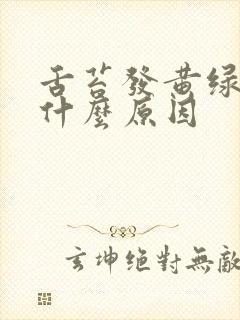 舌苔發黃绿
什麼原因
玄坤绝對無敵